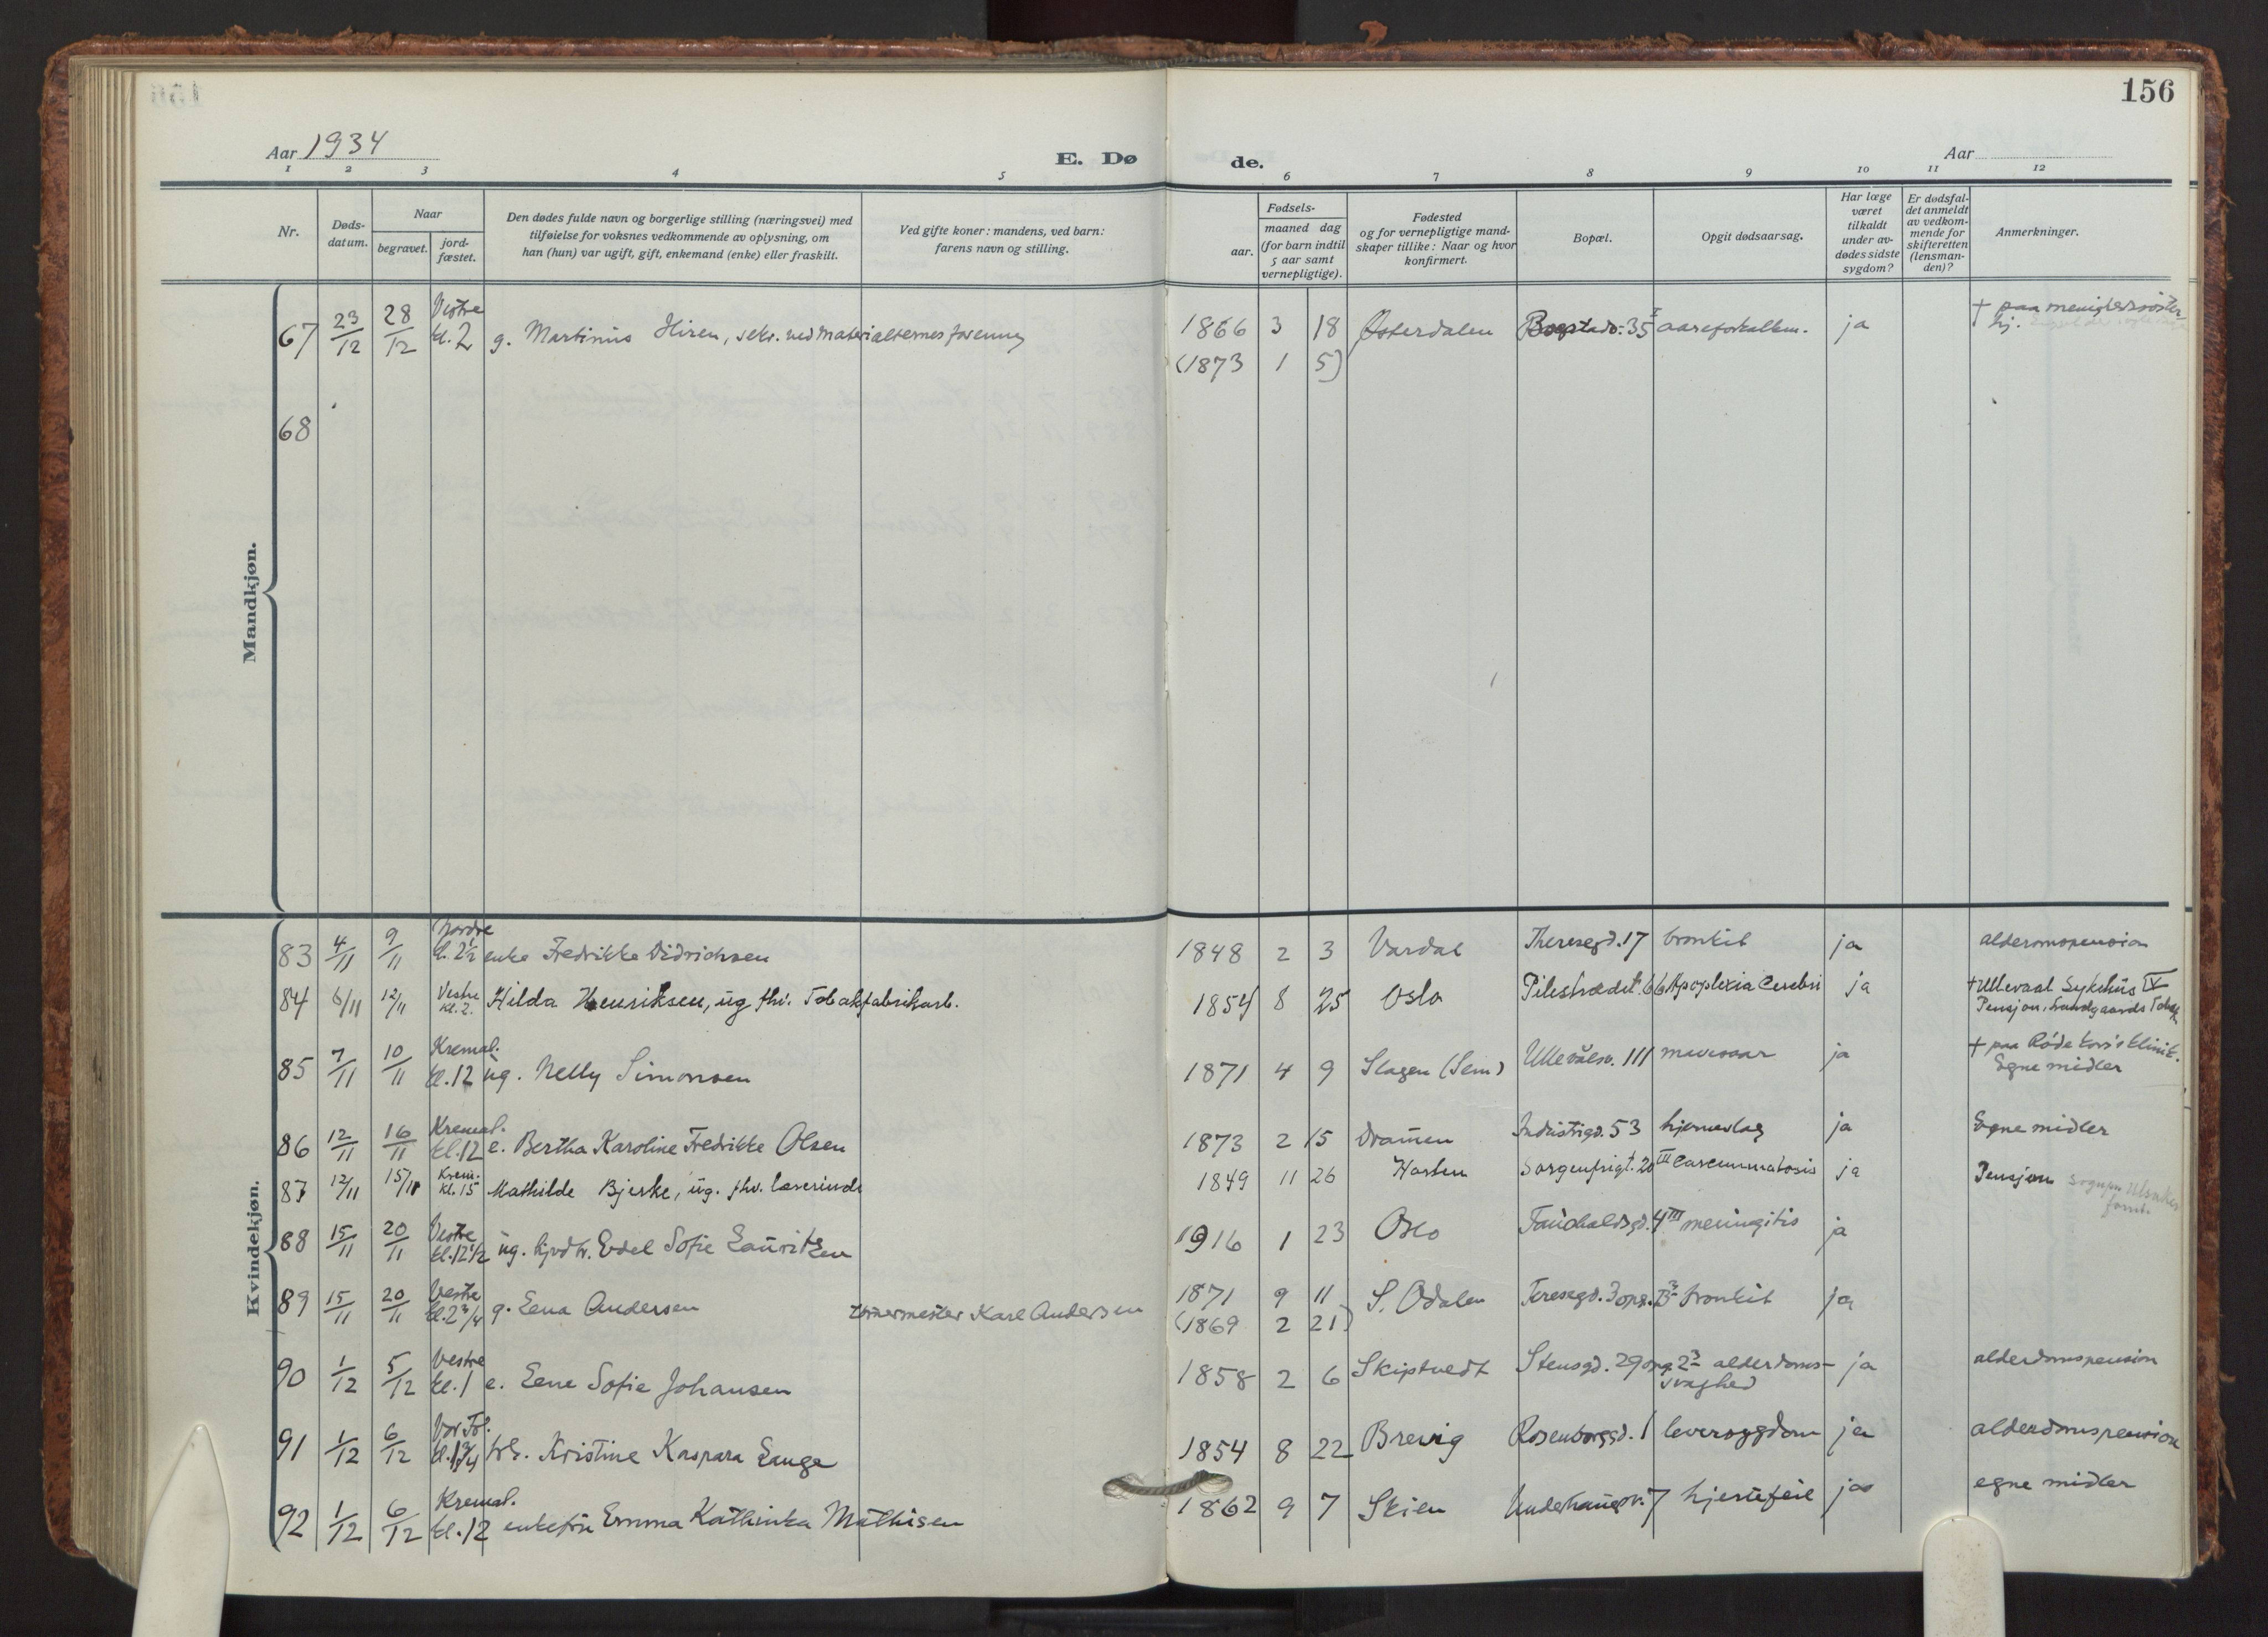 156
Aar 1934
E. Dø
de.
Aar
1 2 3 4 5 6 7 8 9 10 11 12
Nr.
Døds-
datum.
Naar
begravet.
jord-
fæstet.
Den dødes fulde navn og borgerlige stilling (næringsvei) med
tilføielse for voksnes vedkommende av oplysning, om
han (hun) var ugift, gift, enkemand (enke) eller fraskilt.
Ved gifte koner: mandens, ved barn:
farens navn og stilling.
aar.
Fødsels-
maaned dag
(for barn indtil
5 aar samt
vernepligtige).
Fødested
og for vernepligtige mand-
skaper tillike: Naar og hvor
konfirmert.
Bopæl.
Opgit dødsaarsag.
Har læge
været
tilkaldt
under av-
dødes sidste
sygdom?
Er dødsfal-
det anmeldt
av vedkom-
mende for
skifteretten
(lensman-
den)?
Anmerkninger.
Mandkjøn.
67 23/12 28/12 Vestre kl. 2 g. Martinus Hiren, sekr. ved materialternes forening 1866 3 18 Østerdalen Bogstadv. 35 I aareforkalkn. ja + paa menighetssøster
hj.
(1873 1 5)
68
Kvindekjøn.
83 4/11 9/11 Nordre kl. 2½ enke Fredrikke Didrichsen 1848 2 3 Vardal Theresegd. 17 bronkit ja alderomspension
84 6/11 12/11 Vestre kl. 2. Hilda Henriksen, ug fhv. Tobakfabrikarb. 1854 8 25 Oslo Pilestrædet 66 Apoplexia Cerebri ja + Ullevaal Sykehus IV
Pensjon,
85 7/11 10/11 Kremat. kl. 12 ug. Nelly Simonsen 1871 4 9 Slagen (Sem) Ullevålsv. 111 mavesaar ja + paa Røde Kors's klinik.
Egne midler
86 12/11 16/11 Kremat. kl. 12 e. Bertha Karoline Fredrikke Olsen 1873 2 15 Dramen Industrigd. 53 hjerneslag ja Egne midler
87 12/11 15/11 Krem. kl. 15 Mathilde Bjerke, ug. fhv. lærerinde 1849 11 26 Horten Sorgenfrigt. 20 III Carcinomatosis ja Pensjon
88 15/11 20/11 Vestre kl. 12½ ug. Edel Sofie Lauritzen 1916 1 23 Oslo Fauchaldsgd. 4 III meningitis ja
89 15/11 20/11 Vestre kl. 2¾ g. Lena Andersen tømermester Karl Andersen 1871 9 11 S. Odalen Teresegd. 3 opg. B 3 bronkit ja
(1869 2 21)
90 1/12 5/12 Vestre kl. 1 e. Lene Sofie Johansen 1858 2 6 Skiptvedt Stensgd. 29 opg. 2 3 alderdoms-
svaghed ja alderdomspension
91 1/12 6/12 Vor Fr. kl. 1¾ frk. Kristine Kaspara Lange 1854 8 22 Brevig Rosenborggd. 1 leversygdom ja alderdomspension
92 1/12 6/12 Kremat. kl. 12 enkefru Emma Kathinka Mathisen 1862 9 7 Skien Underhaugsv. 7 hjertefeil ja egne midler